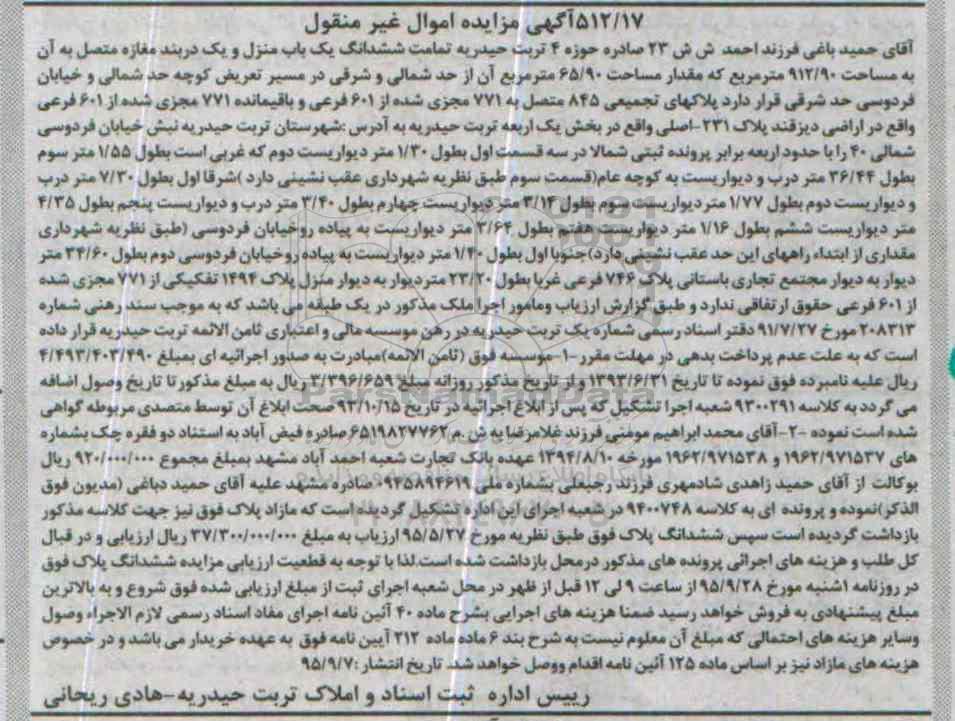 ۵۱۲/۱۷آگهی مزایده اموال غیر منقول
آقای حمید باغی فرزند احمد ش ش ۲۳ صادره حوزه ۴ تربت حیدریه تمامت ششدانگ یک باب منزل و یک دربند مغازه متصل به آن
به مساحت ۹۱۲/۹۰ مترمربع که مقدار مساحت ۶۵/۹۰ مترمربع آن از حد شمالی و شرقی در مسیر تعریض کوچه حد شمالی و خیابان
فردوسی حد شرقی قرار دارد پلاکهای تجمیعی ۸۴۵ متصل به ۷۷۱ مجزی شده از ۶۰۱ فرعی و باقیمانده ۷۷۱ مجزی شده از ۶۰۱ فرعی
واقع در اراضی دیزقند پلاک ۲۳۱-اصلی واقع در بخش یک اربعه تربت حیدریه به آدرس :شهرستان تربت حیدریه نبش خیابان فردوسی
شمالی ۴۰ را با حدود اربعه برابر پرونده ثبتی شمالا در سه قسمت اول بطول ۱/۳۰ متر دیواریست دوم که غربی است بطول ۱/۵۵ متر سوم
بطول ۳۶/۴۴ متر درب و دیواریست به کوچه عام(قسمت سوم طبق نظریه شهرداری عقب نشینی دارد )شرقا اول بطول ۷/۳۰ متر درب
و دیواریست دوم بطول ۱/۷۷ متردیواریست سوم بطول ۳/۱۴ متر دیواریست چهارم بطول ۳/۴۰ متر درب و دیواریست پنجم بطول ۴/۳۵
متر دیواریست ششم بطول ۱/۱۶ متر دیواریست هفتم بطول ۳/۶۴ متر دیواریست به پیاده روخیابان فردوسی (طبق نظریه شهرداری
مقداری از ابتداء راههای این حد عقب نشینی دارد)جنوبا اول بطول ۱/۴۰ متر دیواریست به پیاده روخیابان فردوسی دوم بطول ۳۴/۶۰ متر
دیوار به دیوار مجتمع تجاری باستانی پلاک ۷۴۶ فرعی غربا بطول ۲۳/۲۰ متردیوار به دیوار منزل پلاک ۱۴۹۴ تفکیکی از ۷۷۱ مجزی شده
از ۶۰۱ فرعی حقوق ارتفاقی ندارد و طبق گزارش ارزیاب ومامور اجرا ملک مذکور در یک طبقه می باشد که به موجب سند رهنی شماره
۲۰۸۳۱۳ مورخ ۹۱/۷/۲۷ دفتر اسناد رسمی شماره یک تربت حیدریه در رهن موسسه مالی و اعتباری ثامن الائمه تربت حیدریه قرار داده
است که به علت عدم پرداخت بدهی در مهلت مقرر -۱-موسسه فوق (ثامن الائمه)مبادرت به صدور اجرائیه ای بمبلغ ۴/۴۹۳/۴۰۳/۴۹۰
ریال علیه نامبرده فوق نموده تا تاریخ ۱۳۹۳/۶/۳۱ و از تاریخ مذکور روزانه مبلغ ۳/۳۹۶/۶۵۹ ریال به مبلغ مذکورتا تاریخ وصول اضافه
می گردد به کلاسه ۹۳۰۰۲۹۱ شعبه اجرا تشکیل که پس از ابلاغ اجرائیه در تاریخ ۹۳/۱۰/۱۵ صحت ابلاغ آن توسط متصدی مربوطه گواهی
شده است نموده -۲-آقای محمد ابراهیم مومنی فرزند غلامرضا به ش.م ۶۵۱۹۸۲۷۷۶۲ صادره فیض آباد به استناد دو فقره چک بشماره
های ۱۹۶۲/۹۷۱۵۳۷ و ۱۹۶۲/۹۷۱۵۳۸ مورخه ۱۳۹۴/۸/۱۰ عهده بانک تجارت شعبه احمد آباد مشهد بمبلغ مجموع ۹۲۰/۰۰۰/۰۰۰ ریال
بوکالت از آقای حمید زاهدی شادمهری فرزند رجبعلی بشماره ملی ۰۹۴۵۸۹۴۶۱۹ صادره مشهد علیه آقای حمید دباغی (مدیون فوق
الذکر)نموده و پرونده ای به کلاسه ۹۴۰۰۷۴۸ در شعبه اجرای این اداره تشکیل گردیده است که مازاد پلاک فوق نیز جهت کلاسه مذکور
بازداشت گردیده است سپس ششدانگ پلاک فوق طبق نظریه مورخ ۹۵/۵/۲۷ ارزیاب به مبلغ ۳۷/۳۰۰/۰۰۰/۰۰۰ ریال ارزیابی و در قبال
کل طلب و هزینه های اجرائی پرونده های مذکور درمحل بازداشت شده است.لذا با توجه به قطعیت ارزیابی مزایده ششدانگ پلاک فوق
در روزنامه ۱شنبه مورخ ۹۵/۹/۲۸ از ساعت ۹ لی ۱۲ قبل از ظهر در محل شعبه اجرای ثبت از مبلغ ارزیابی شده فوق شروع و به بالاترین
مبلغ پیشنهادی به فروش خواهد رسید ضمنا هزینه های اجرایی بشرح ماده ۴۰ آئین نامه اجرای مفاد اسناد رسمی لازم الاجراء وصول
وسایر هزینه های احتمالی که مبلغ آن معلوم نیست به شرح بند ۶ ماده ماده ۲۱۲ آیین نامه فوق به عهده خریدار می باشد و در خصوص
هزینه های مازاد نیز بر اساس ماده ۱۲۵ آئین نامه اقدام ووصل خواهد شد. تاریخ انتشار :۹۵/۹/۷
رییس اداره ثبت اسناد و املاک تربت حیدریه-هادی ریحانی
ParsNamadData